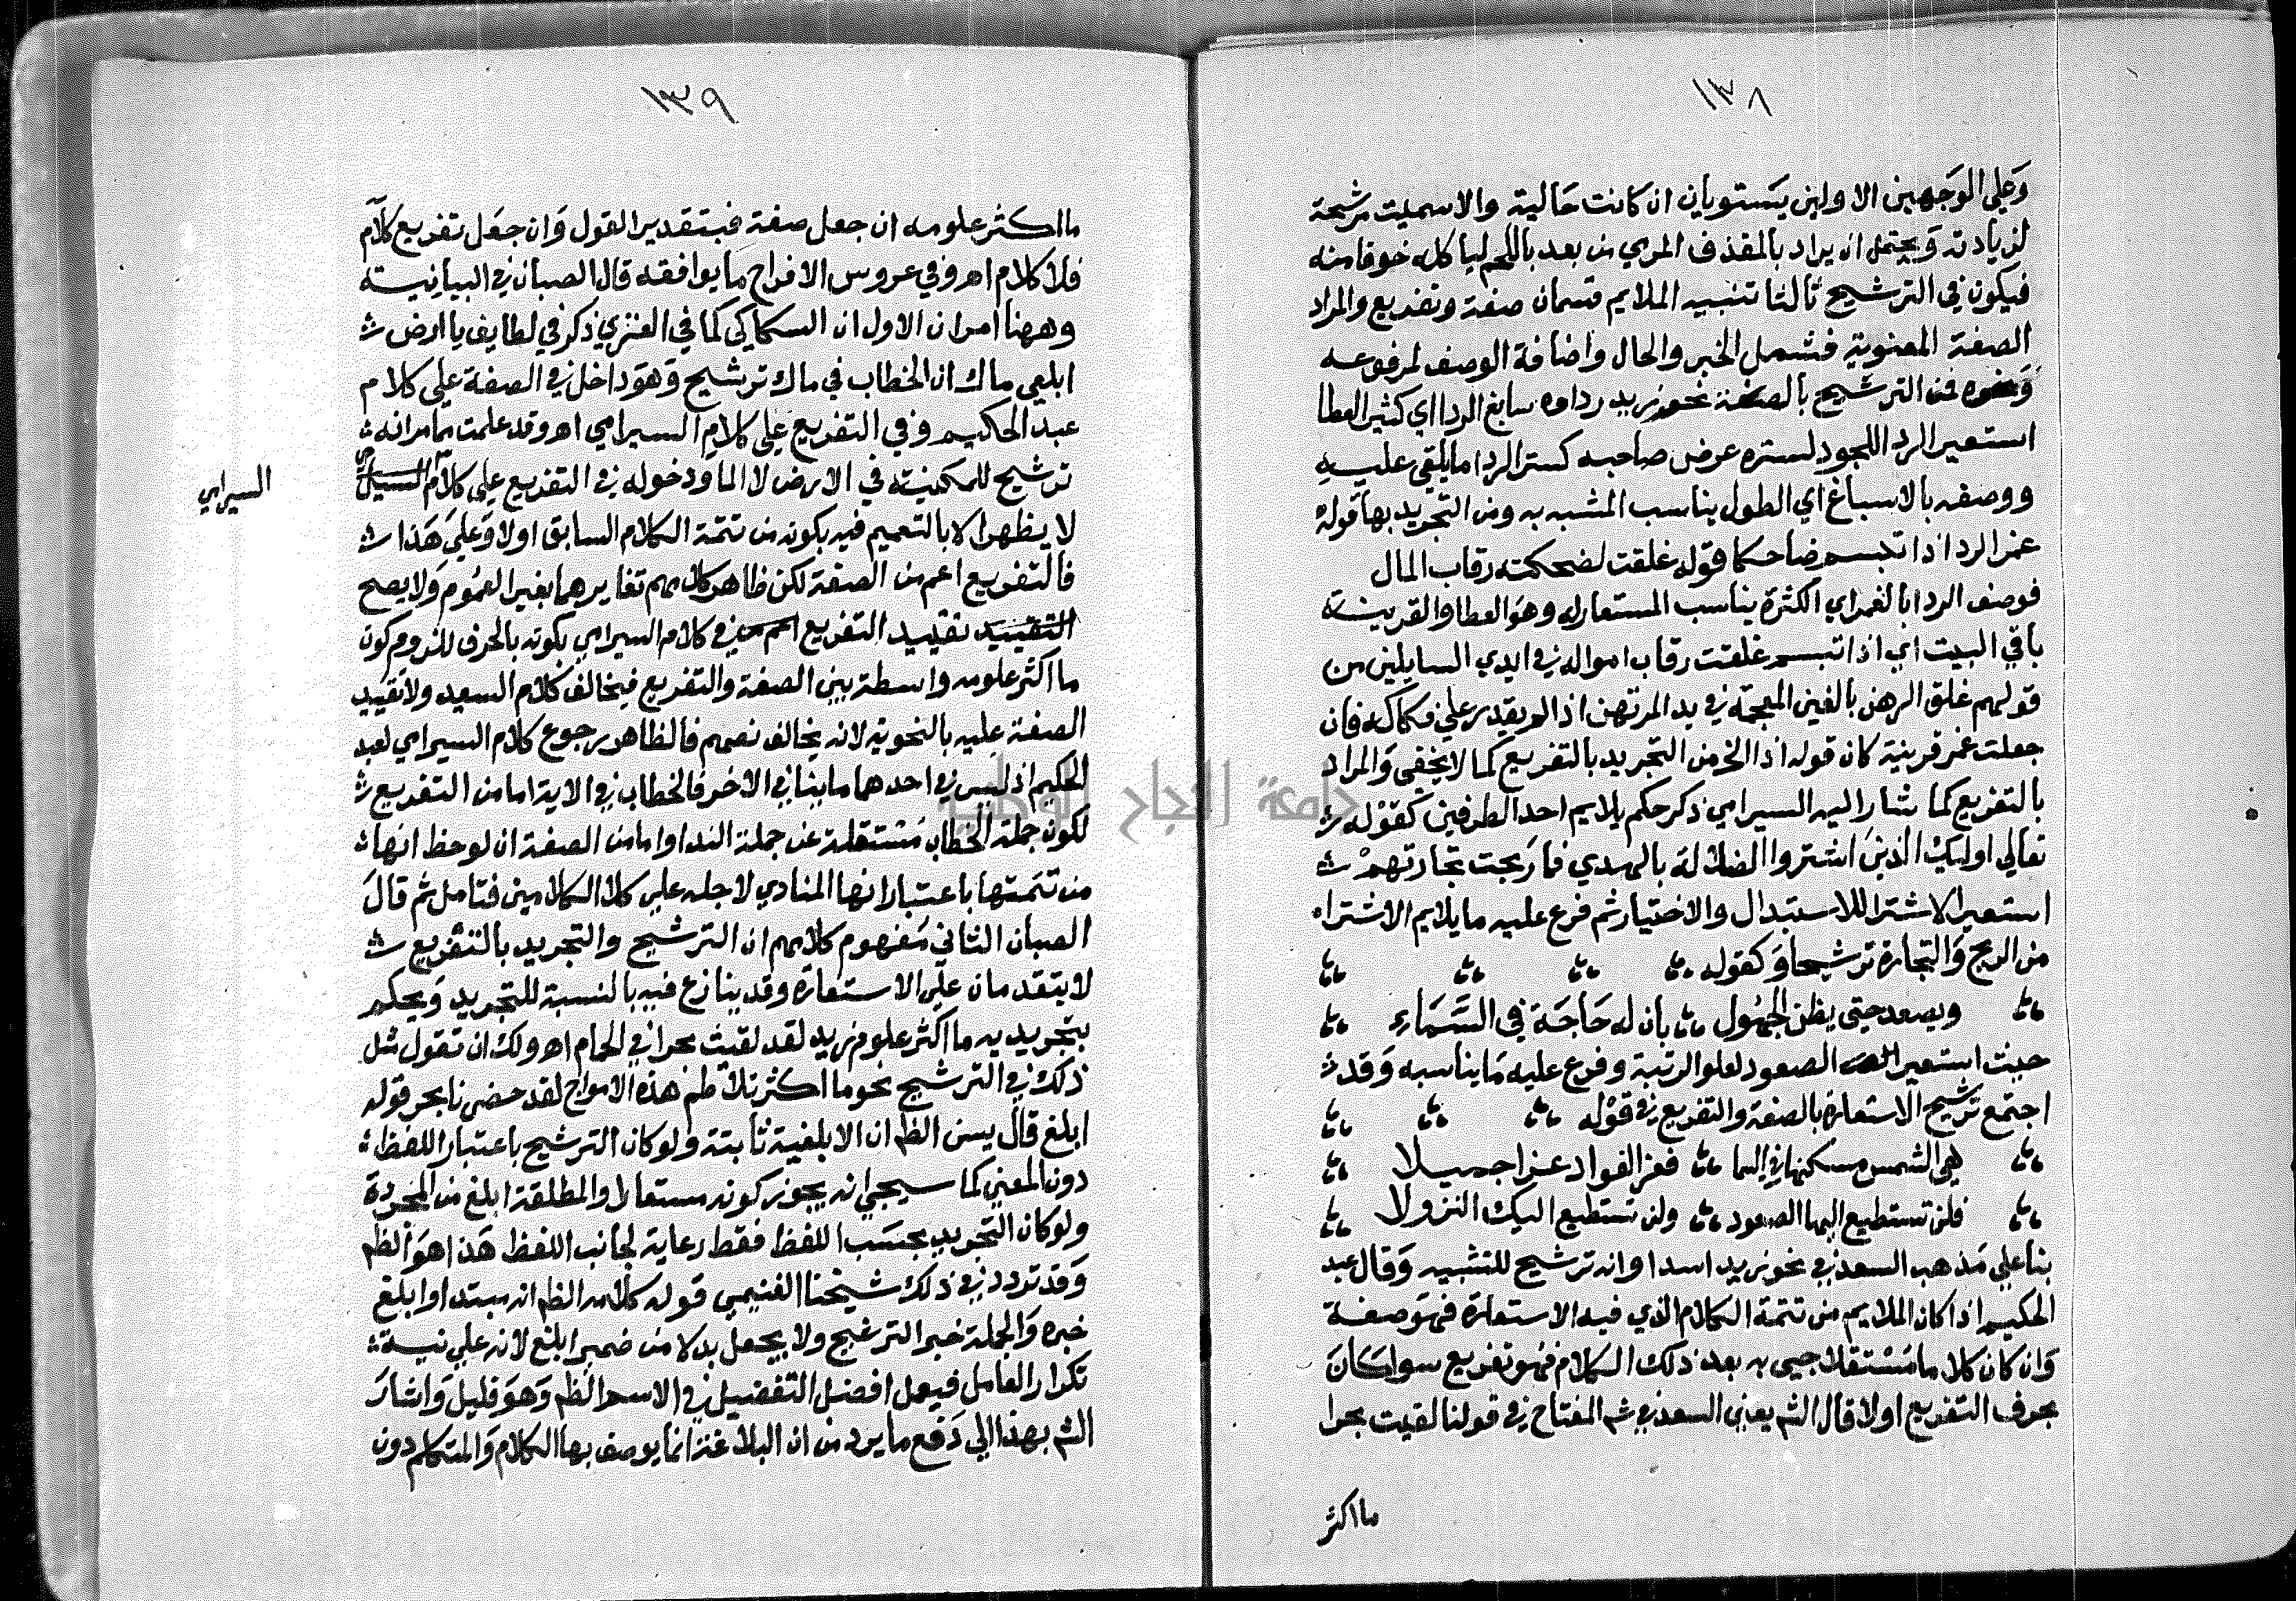 ١٣٨
وعلي الوجهين الاولين يستويان ان كانت حالية والاسميت مرشحة
لزيادته ويحتمل ان يراد بالمقذف المرمي من بعد باللحم لياكله خوفا منه
فيكون في الترشيح ثالثا تنبيه الملايم قسمان صفة وتفريع والمراد
الصفة المعنوية فشمل الخبر والحال واضافة الوصف لمرفوعه
ونحوه فمن الترشيح بالصفة نحو زيد رداوه سابغ الردا اي كثير العطا
استعير الردا للجود لستره عرض صاحبه كستر الردا ما يلقي عليه
ووصفه بالاسباغ اي الطول يناسب المشبه به ومن التجريد بها قوله
غمر الردا اذا تبسم ضاحكا قوله غلقت لضحكته رقاب المال
فوصف الردا بالغمر اي الكثرة يناسب المستعار له وهو العطا والقرينة
باقي البيت اي اذا تبسم غلقت رقاب امواله في ايدي السايلين من
قولهم غلق الرهن بالغين المعجمة في يد المرتهن اذا لم يقدر علي فكاكه فان
جعلت غمر قرينة كان قوله اذا الخ من التجريد بالتفريع كما لا يخفي والمراد
بالتفريع كما شار اليه السيرامي ذكر حكم يلايم احد الطرفين كقوله
تعالي اوليك الذين اشتروا الضلالة بالهدي فما ربحت تجارتهم
استعير الاشترا للاستبدال والاختيار ثم فرع عليه ما يلايم الاشتراء
من الربح والتجارة ترشيحا وكقوله
ويصعد حتي يظن الجهول بان له حاجة في السماء
حيث استعير الصعود لعلو الرتبة وفرع عليه ما يناسبه وقد
اجتمع ترشيح الاستعارة بالصفة والتفريع في قوله
هي الشمس مسكنها في السما فعز الفواد عزا جميلا
فلن تستطيع اليها الصعود ولن تستطيع اليك النزولا
بنا علي مذهب السعد في نحو زيد اسد او انه ترشيح للتشبيه وقال عبد
الحكيم اذا كان الملايم من تتمة الكلام الذي فيه الاستعارة فهو صفة
وان كان كلاما مستقلا جيى به بعد ذلك الكلام فهو تفريع سوا كان
بحرف التفريع اولا قال الشم يعني السعد في شم المفتاح في قولنا لقيت بحرا
ما اكثر
١٣٩
ما اكثر علومه ان جعل صفة فبتقدير القول وان جعل تفريع كلام
فلا كلام اهـ وفي عروس الافراح ما يوافقه قال الصبان في البيانية
وههنا امران الاول ان السكاكي كما في الفنري ذكر في لطايف يا ارض
ابلعي ماك ان الخطاب في ماك ترشيح وهو داخل في الصفة علي كلام
عبد الحكيم وفي التفريع علي كلام السيرامي اهـ وقد علمت مما مر انه
ترشيح للمكنية في الارض لا الما ودخوله في التفريع علي كلام
السيرامي
لا يظهر الا بالتعميم فيه بكونه من تتمة الكلام السابق اولا وعلي هذا
فالتفريع اعم من الصفة لكن ظاهر كلامهم تغايرهما بغير العموم ولا يصح
التقييد تقييد التفريع في كلام السيرامي بكونه بالحرف للزوم كون
ما اكثر علومه واسطة بين الصفة والتفريع فيخالف كلام السعد ولا تقييد
الصفة عليه بالنحوية لانه يخالف نصهم فالظاهر رجوع كلام السيرامي لعبد
الحكيم اذ ليس في احدهما ما ينافي الاخر فالخطاب في الاية اما من التفريع
لكون جملة الخطاب مستقلة عن جملة الندا واما من الصفة ان لوحظ انها
من تتمتها باعتبار انها المنادي لاجله علي كلا الكلامين فتامل ثم قال
الصبان الثاني مفهوم كلامهم ان الترشيح والتجريد بالتفريع
لا يتقدمان علي الاستعارة وقد ينازع فيه بالنسبة للتجريد ويحكم
بتجريديه ما اكثر علوم زيد لقد لقيت بحرا في الحمام اهـ ولك ان تقول مثل
ذلك في الترشيح نحو ما اكثر تلاطم هذه الامواج لقد حضرنا بحر قوله
ابلغ قال يسن الظم ان الابلغية ثابتة ولو كان الترشيح باعتبار اللفظ
دون المعني كما سيجيى انه يجوز كونه مستعارا والمطلقة ابلغ من المجردة
ولو كان التجريد بحسب اللفظ فقط رعاية لجانب اللفظ هذا هو الظم
وقد تردد في ذلك شيخنا الغنيمي قوله كلامه الظم انه مبتدا وابلغ
خبره والجملة خبر الترشيح ولا يجعل بدلا من ضمير ابلغ لانه علي نية
تكرار العامل فيعمل افضل التفضيل في الاسم الظم وهو قليل واشار
الشم بهذا الي دفع ما يرد من ان البلاغة انما يوصف بها الكلام والمتكلم دون